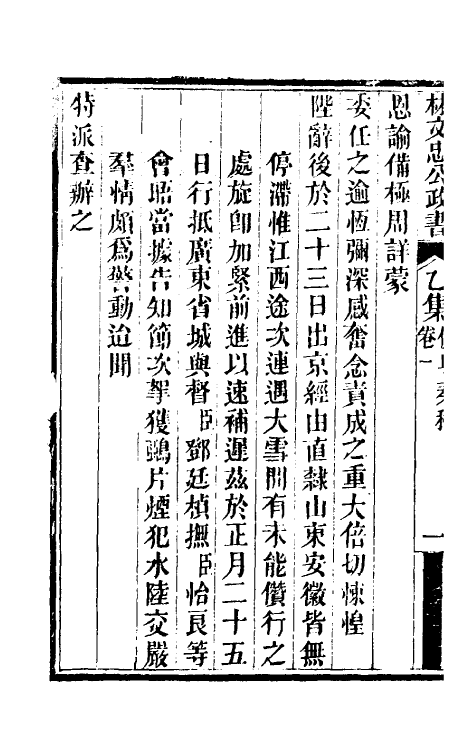 林文忠公政書 乙集 卷一 一
恩諭備極周詳蒙
委任之逾恆彌深感奮念責成之重大倍切悚惶
陛辭後於二十三日出京經由直隸山東安徽皆無
停滯惟江西途次連遇大雪間有未能儧行之
處旋即加緊前進以速補遲茲於正月二十五
日行抵廣東省城與督臣鄧廷楨撫臣怡良等
會晤當據告知節次拏獲鴉片煙犯水陸交嚴
羣情頗爲警動迨聞
特派查辦之